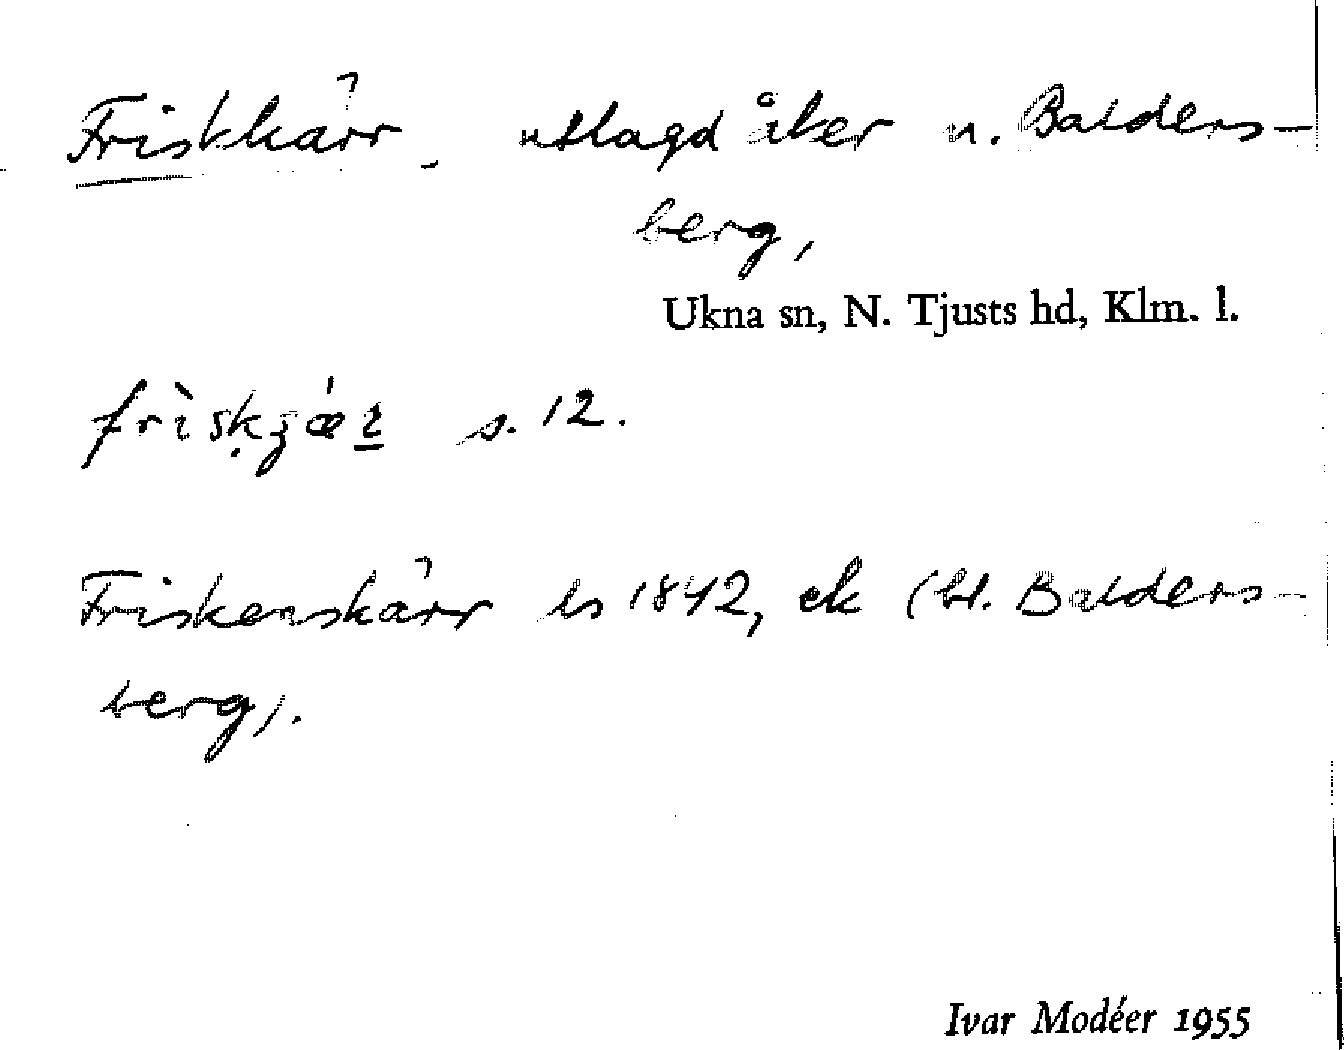 Friskkärr, utlagd åker u. Balders-
berg,
Ukna sn, N. Tjusts hd, Klm. l.
s. 12.
Friskenskärr ls 1842, ek (bl. Balders-
berg).
Ivar Modéer 1955